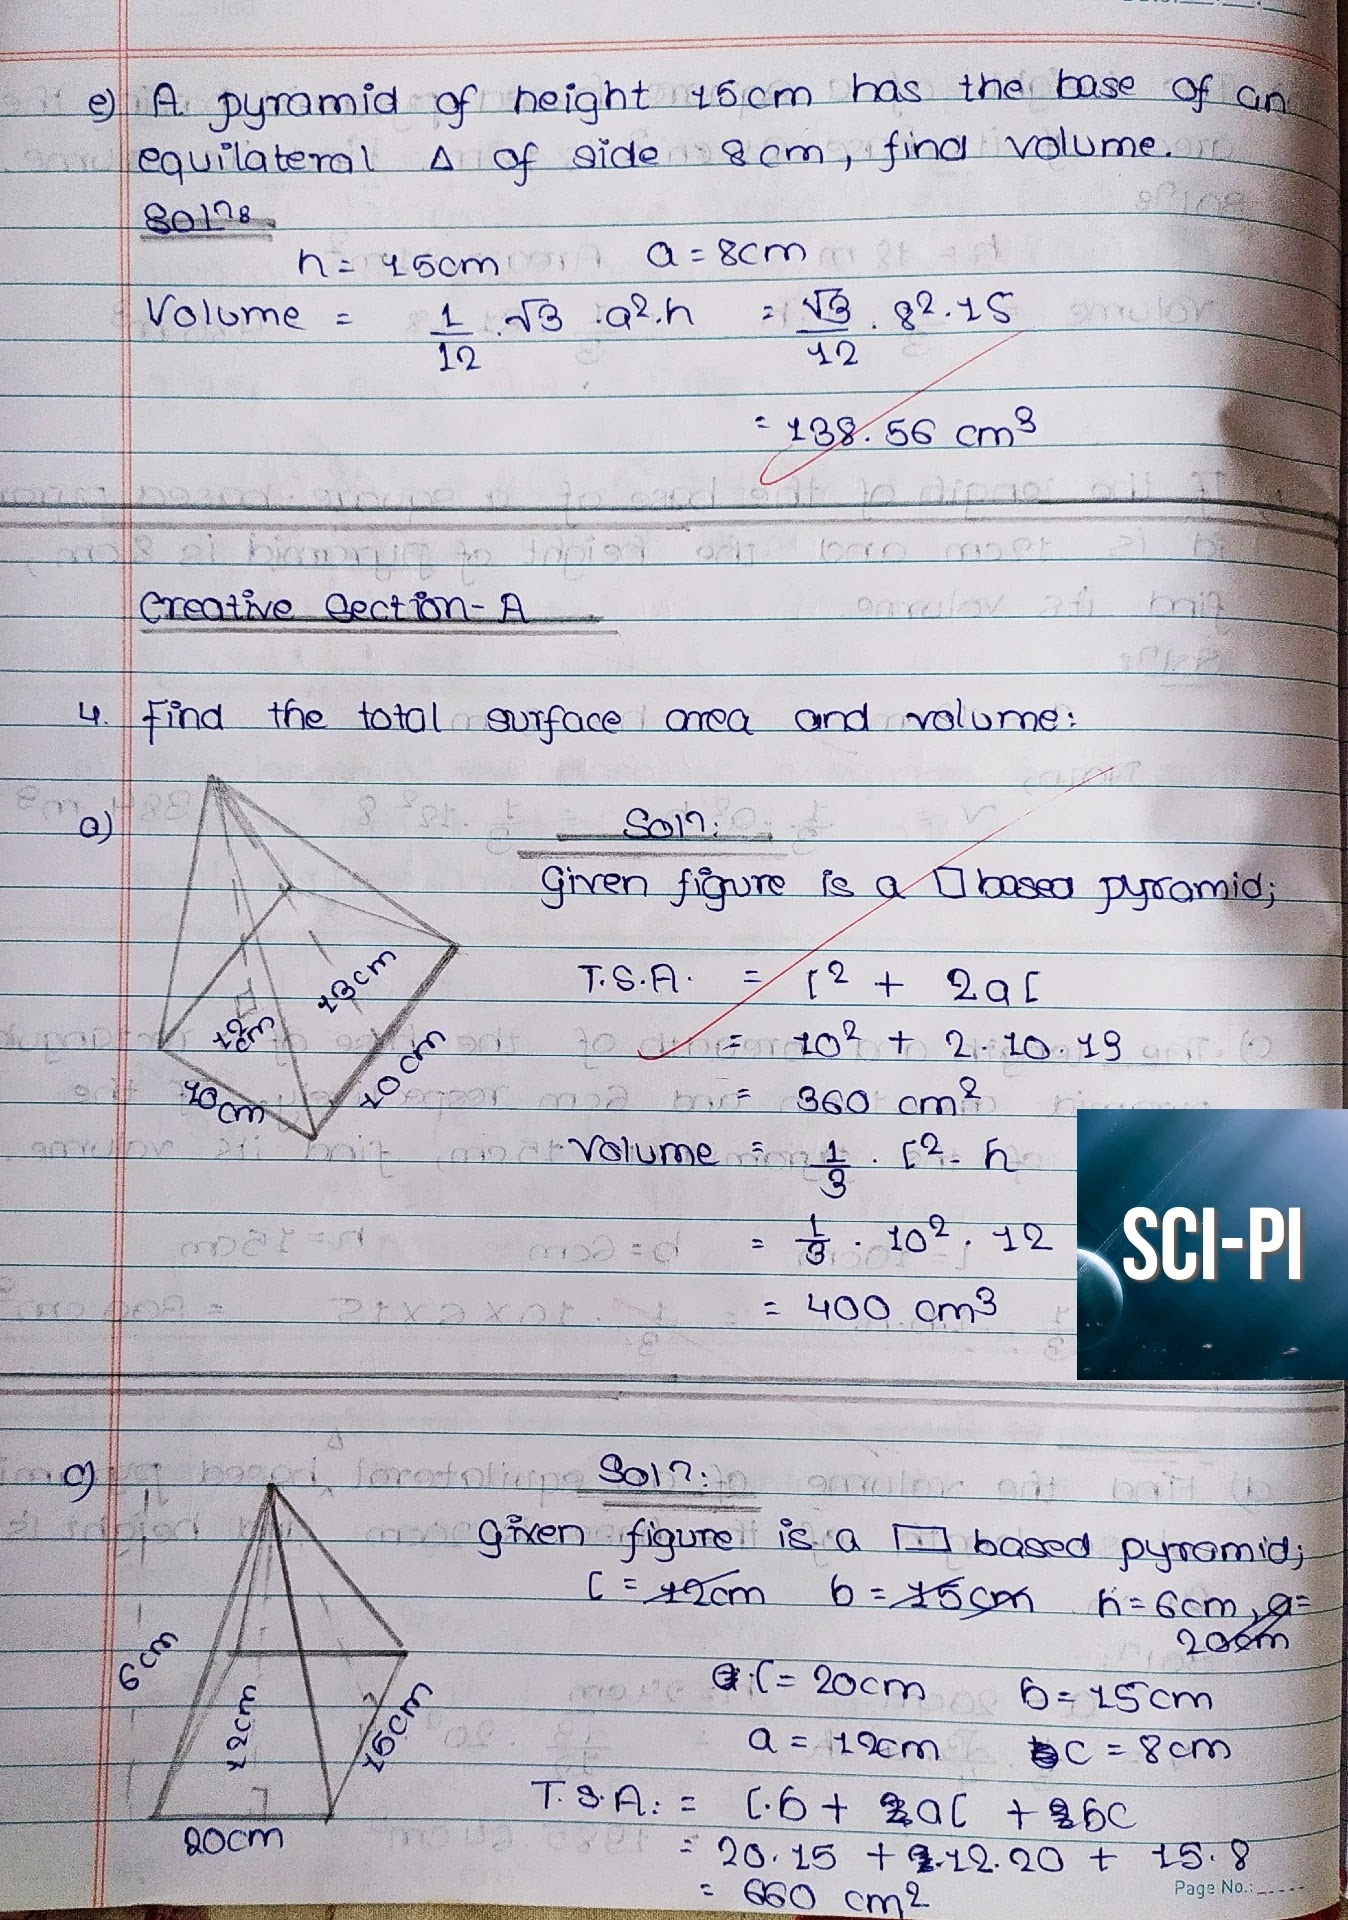 e) A pyramid of height 15cm has the base of an
equilateral Δ of side 8cm, find volume.
Solⁿ:
h = 15cm a = 8cm
Volume = 1/12 . √3 . a² . h = √3/12 . 8² . 15
= 138.56 cm³
Creative Section - A
4. Find the total surface area and volume:
a)
Solⁿ:
Given figure is a □ based pyramid;
T.S.A. = l² + 2al
= 10² + 2.10.13
= 360 cm²
Volume = 1/3 . l² . h
= 1/3 . 10² . 12
= 400 cm³
12 cm
13cm
10cm
10cm
SCI-PI
c)
Solⁿ:
Given figure is a ▭ based pyramid;
l = 12cm b = 15cm h = 6cm, a =
20cm
l = 20cm b = 15cm
a = 12cm c = 8cm
T.S.A. = l.b + al + bc
= 20.15 + 12.20 + 15.8
= 660 cm²
6cm
12cm
15cm
20cm
Page No.: